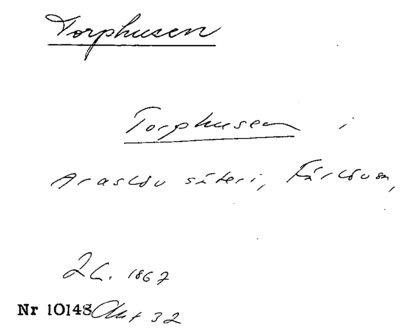 Torphusen
Torphusen i
Araslöv säteri, Färlövsn,
Nr 10148 Akt 32